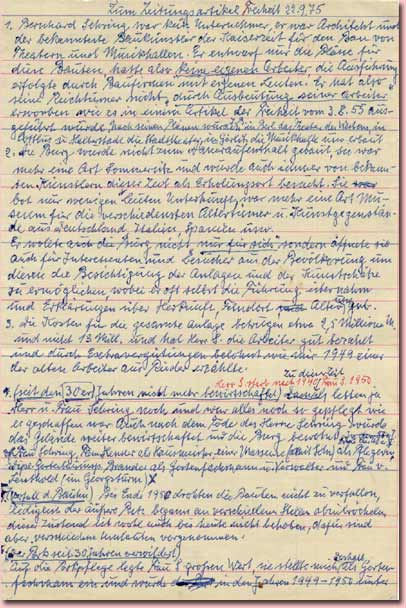 Zum Zeitungsartikel Freiheit 22.9.75
1. Bernhard Sehring, war kein Unternehmer, er war Architekt und
der bekannteste Baukünstler der Kaiserzeit für den Bau von
Theatern und Musikhallen. Er entwarf nur die Pläne für
diese Bauten, hatte also keine eigenen Arbeiter die Ausführung
erfolgte durch Baufirmen mit eigenen Leuten. Er hat also
seine Reichtümer nicht durch Ausbeutung seiner Arbeiter
erworben wie es in einem Artikel der Freiheit vom 3.8.55 aus-
geführt wurde. Nach seinen Plänen wurde in Berl. das Theater des Westens, in
Cottbus u. Halberstadt die Stadttheater, in Görlitz die Musikhalle uns erbaut
2. Die Burg wurde nicht zum Daueraufenthalt gebaut, sie war
mehr eine Art Sommersitz und wurde auch immer von bekann-
ten Künstlern dieser Zeit als Erholungsort besucht. Sie
bot nur wenigen Leuten Unterkunft, war mehr eine Art Mu-
seum für die verschiedensten Altertümer u. Kunstgegenstän-
de aus Deutschland, Italien, Spanien usw.
Er wollte auch die Burg nicht nur für sich sondern öffnete sie
auch für Interessenten und Besucher aus der Bevölkerung um
diesen die Besichtigung der Anlagen und der Kunstschätze
zu ermöglichen, wobei er oft selbst die Führung übernahm
und Erklärungen über Herkunft, Fundort Alter gab.
3. Die Kosten für die gesamte Anlage betrugen etwa 2,5 Millionen M.
und nicht 13 Mill. und hat Herr S. die Arbeiter gut bezahlt
und durch Extravergütungen belohnt wie mir 1949 einer
der alten Arbeiter aus Rieder erzählte.
zu der Zeit
Herr S. starb nach 1940 Frau S. 1950
4. (seit den 30er Jahren nicht mehr bewirtschaftet) lebten ja
Herr u. Frau Sehring noch und war alles noch so gepflegt wie
er geschaffen war. Auch nach dem Tode des Herrn Sehring wurde
das Gelände weiter bewirtschaftet und die Burg bewohnt
Frau Sehring, Frau als Pflegerin,
Brandes als Gartenfachmann u. Verwalter und Frau v.
(im Georgsturm)
(Verfall d. Bauten) Bis Ende 1950 drohten die Bauten nicht zu verfallen,
lediglich der äußere Putz begann an verschiedenen Stellen abzubröckeln,
dieser Zustand ist wohl auch bis heute nicht behoben, dafür sind
aber vermieden worden vorgenommen.
(Der Park seit 30 Jahren verwildert)
Auf die Parkpflege legte Frau S. großen Wert, sie stellte mich deshalb als Garten-
fachmann ein und wurde in den Jahren 1949-1950 unter